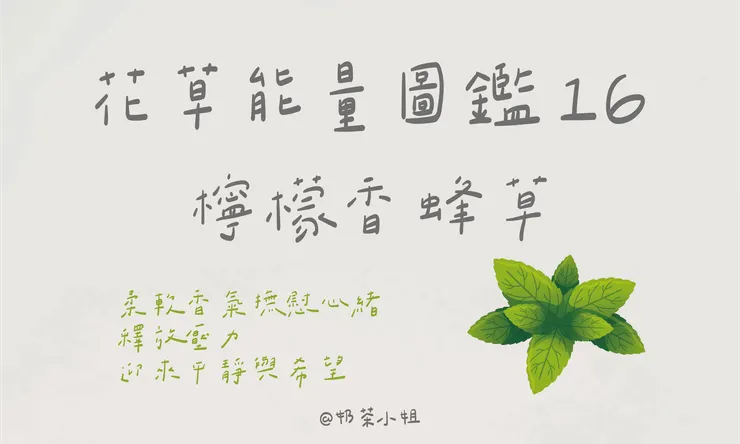 花草能量圖鑑16
檸檬香蜂草
柔軟香氣撫慰心緒
釋放壓力
迎來平靜與希望
@奶茶小姐